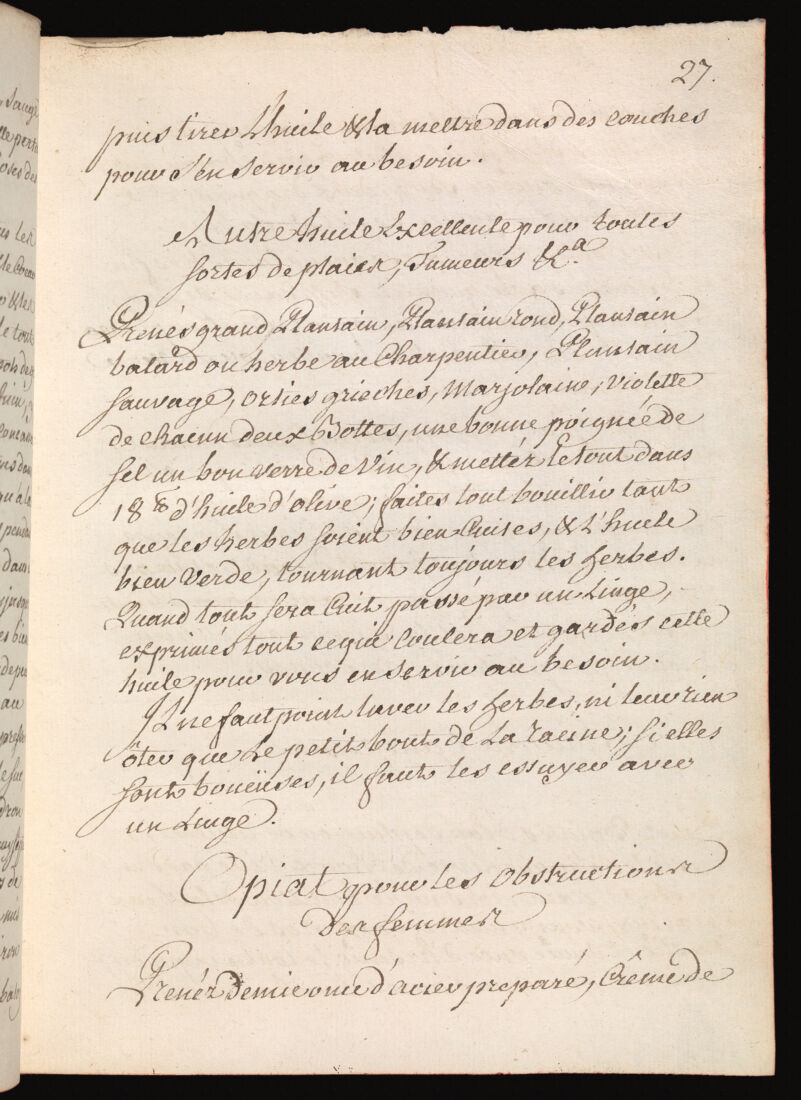 27.
puis tirer L'huile & la mettre dans des couches
pour s'en servir au besoin.
Autre huile Excellente pour toutes
sortes de plaies, Tumeurs &ca.
Prenés grand Plantain, Plantain rond, Plantain
batard ou herbe au Charpentier, Plantain
sauvage, orties grieches, Marjolaine, violette
de chacun deux Bottes, une bonne poignée de
sel un bon verre de Vin, & mettéz le tout dans
18 lb d'huile d'olive; faites tout bouillir tant
que les herbes soient bien Cuites, & L'huile
bien verde, tournant toujours les herbes.
Quand tout sera Cuit passé par un Linge,
exprimés tout ce qui Coulera et gardés cette
huile pour vous en servir au besoin.
Il ne faut point laver les herbes, ni leur rien
ôter que Le petit bout de La racine; si elles
sont boueuses, il faut les essuyer avec
un Linge.
Opiat pour les obstructions
des femmes
Prenéz demie once d'acier preparé, Crême de